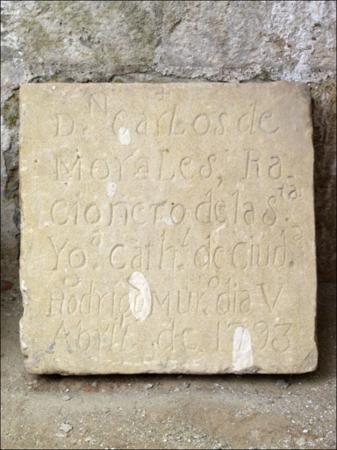 Dⁿ Carlos de
Morales, Ra-
cionero de la Sᵗᵃ
Yᵒ. Cathˡ. de Ciudᵃ
Rodrigo Murᵒ. dia V
Abril de 1793